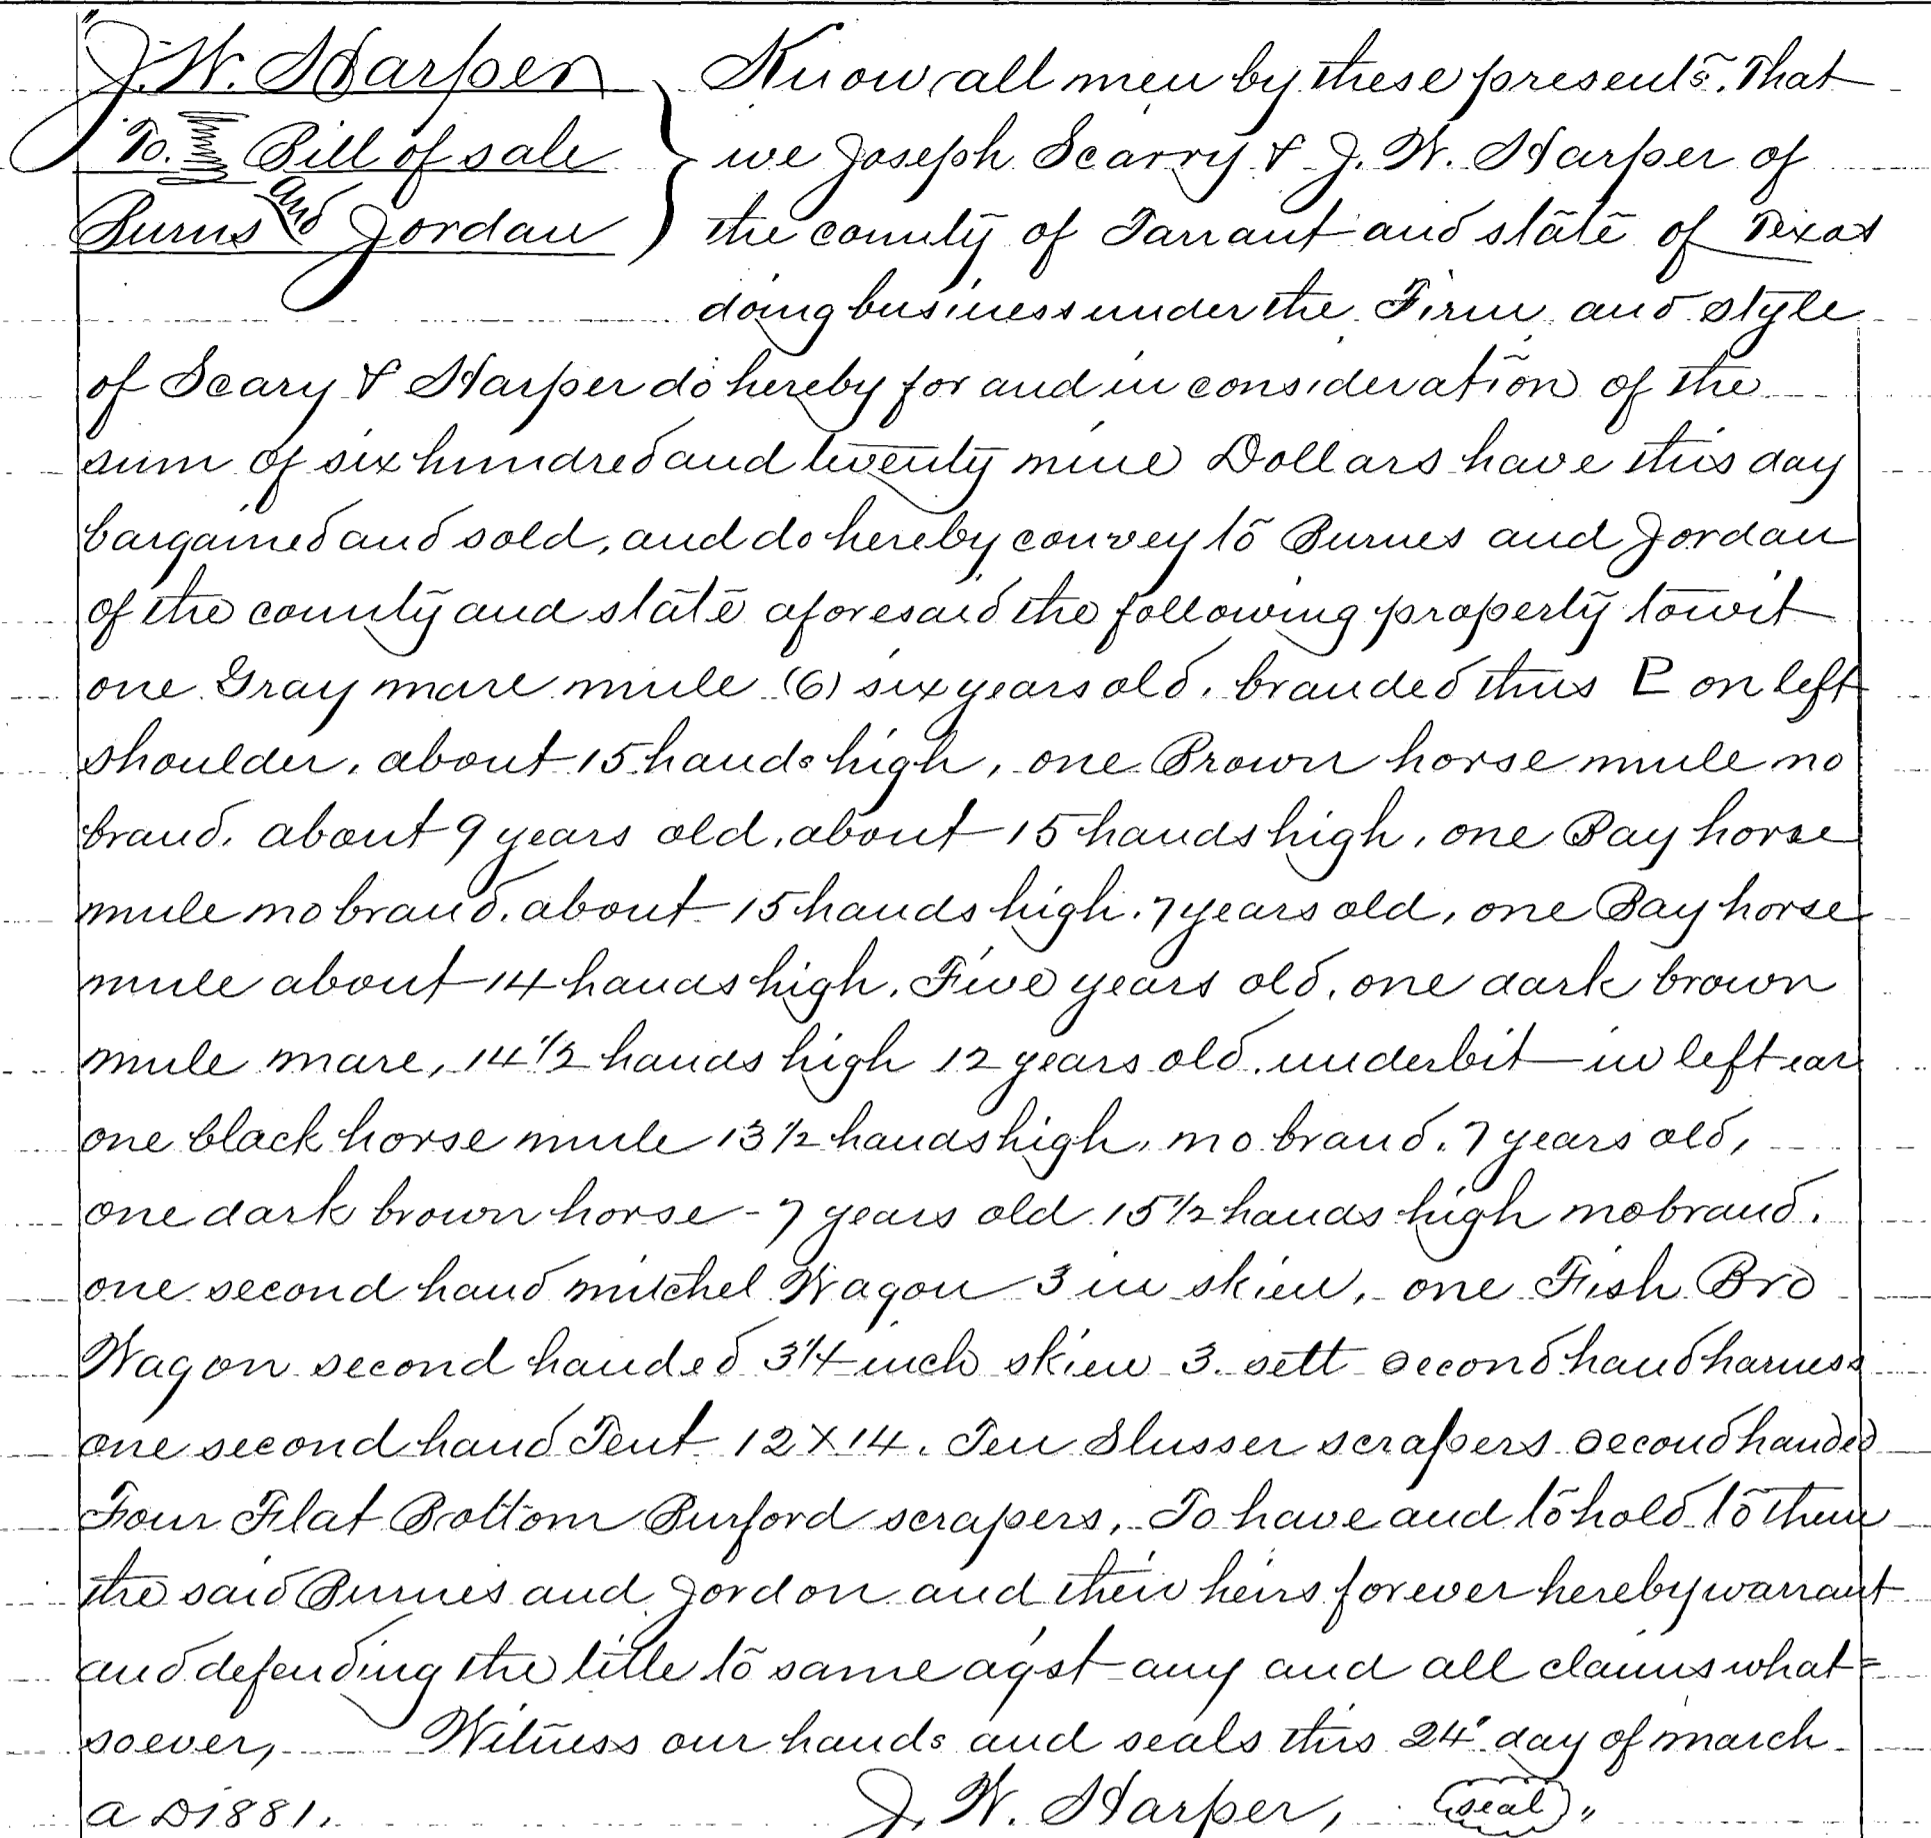 J. W. Harper
To. Bill of sale
Burns and Jordan
Know all men by these presents. That
we Joseph Scarry & J. W. Harper of
the county of Tarrant and state of Texas
doing business under the Firm and style
of Scary & Harper do hereby for and in consideration of the
sum of six hundred and twenty nine Dollars have this day
bargained and sold, and do hereby convey to Burnes and Jordan
of the county and state aforesaid the following property towit
one Gray mare mule (6) six years old. branded thus P on left
shoulder. about 15 hands high, one Brown horse mule no
brand. about 9 years old. about 15 hands high, one Bay horse
mule no brand. about 15 hands high. 7 years old, one Bay horse
mule about 14 hands high. Five years old. one dark brown
mule mare, 14 1/2 hands high 12 years old. underbit in left ear
one black horse mule 13 1/2 hands high, no brand. 7 years old,
one dark brown horse - 7 years old 15 1/2 hands high no brand.
one second hand mitchel Wagon 3 in skien, one Fish Bro
Wagon second handed 3 1/4 inch skien 3. sett second hand harness
one second hand Tent 12 X 14. Ten Slusser scrapers second handed
Four Flat Bottom Burford scrapers, To have and to hold to them
the said Burnes and Jordon and their heirs forever hereby warrant
and defending the title to same agst any and all claims what=
soever, Witness our hands and seals this 24" day of march
a D 1881. J. W. Harper, (seal) "